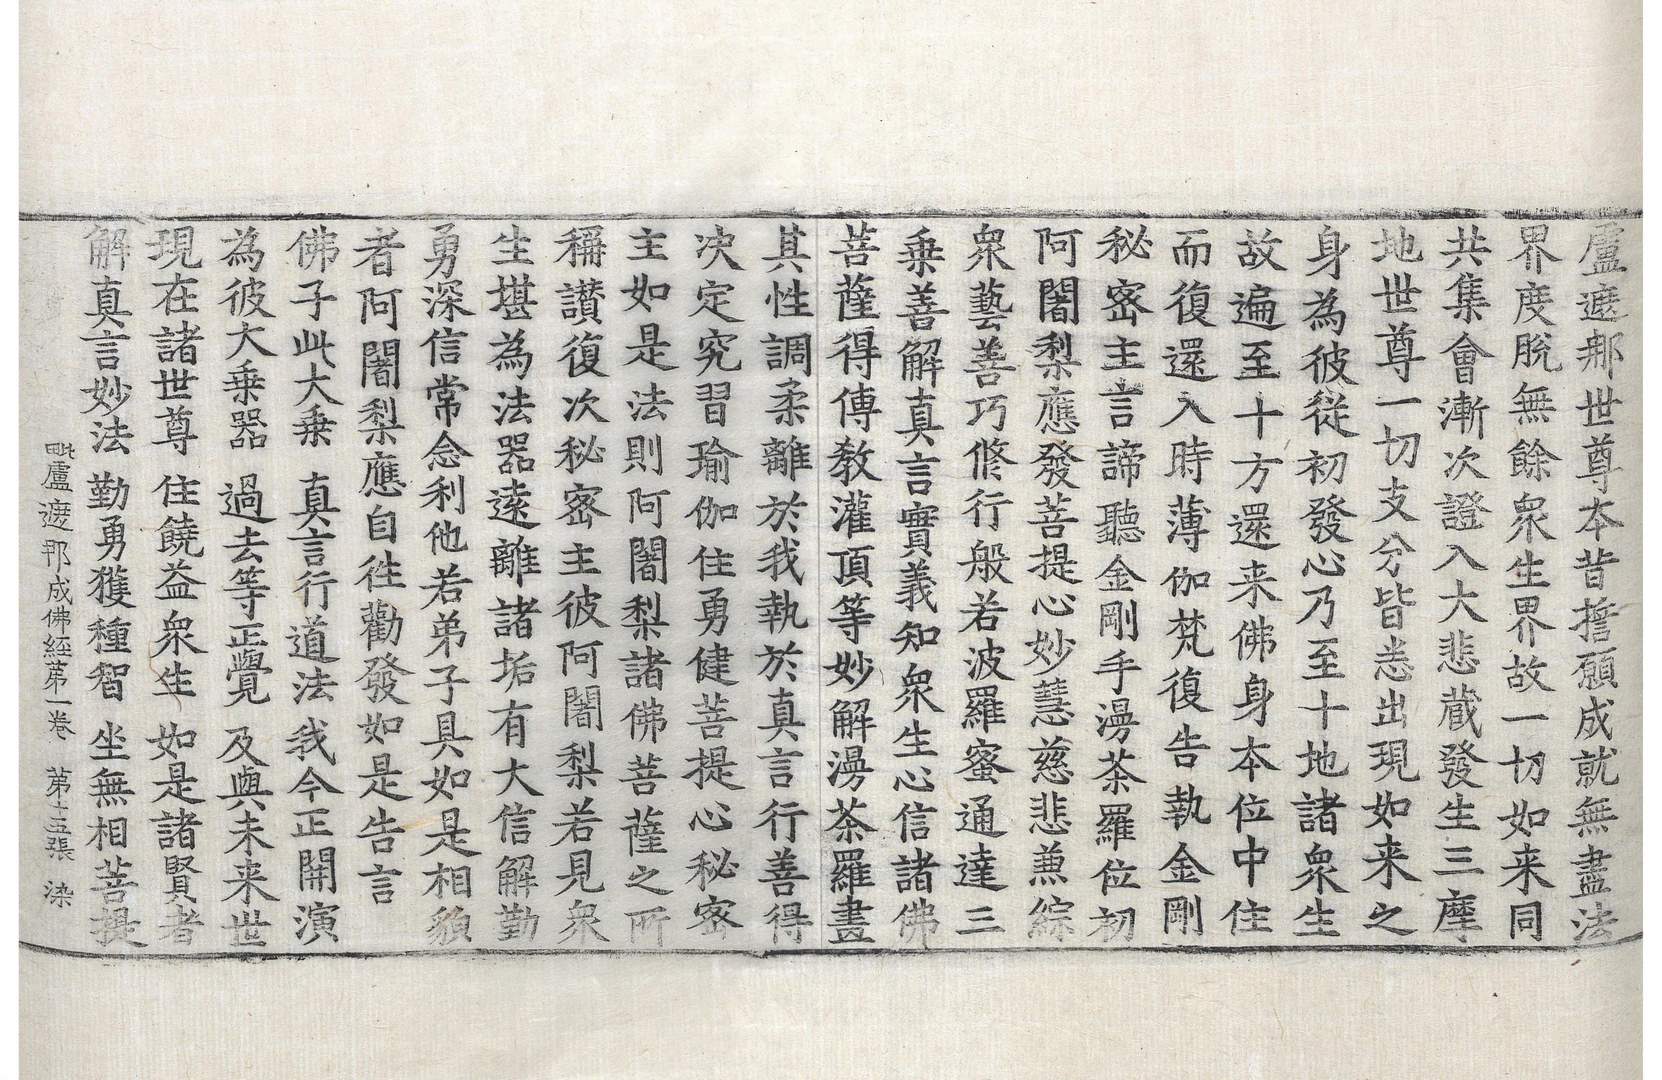 盧遮那世尊本昔誓願成就無盡法
界度脫無餘衆生界故一切如来同
共集會漸次證入大悲藏發生三摩
地世尊一切支分皆悉出現如来之
身為彼從初發心乃至十地諸衆生
故遍至十方還来佛身本位中住
而復還入時薄伽梵復告執金剛
秘密主言諦聽金剛手漫荼羅位初
阿闍梨應發菩提心妙慧慈悲兼綜
衆藝善巧修行般若波羅蜜通達三
乗善解真言實義知衆生心信諸佛
菩薩得傳教灌頂等妙解漫荼羅畫
其性調柔離於我執於真言行善得
决定究習瑜伽住勇健菩提心秘密
主如是法則阿闍梨諸佛菩薩之所
稱讃復次秘密主彼阿闍梨若見衆
生堪為法器遠離諸垢有大信解勤
勇深信常念利他若弟子具如是相貌
者阿闍梨應自往勸發如是告言
佛子此大乗 真言行道法 我今正開演
為彼大乗器 過去等正覺 及與未来世
現在諸世尊 住饒益衆生 如是諸賢者
解真言妙法 勤勇獲種智 坐無相菩提
毗盧遮那成佛經第一卷 第十五張 染